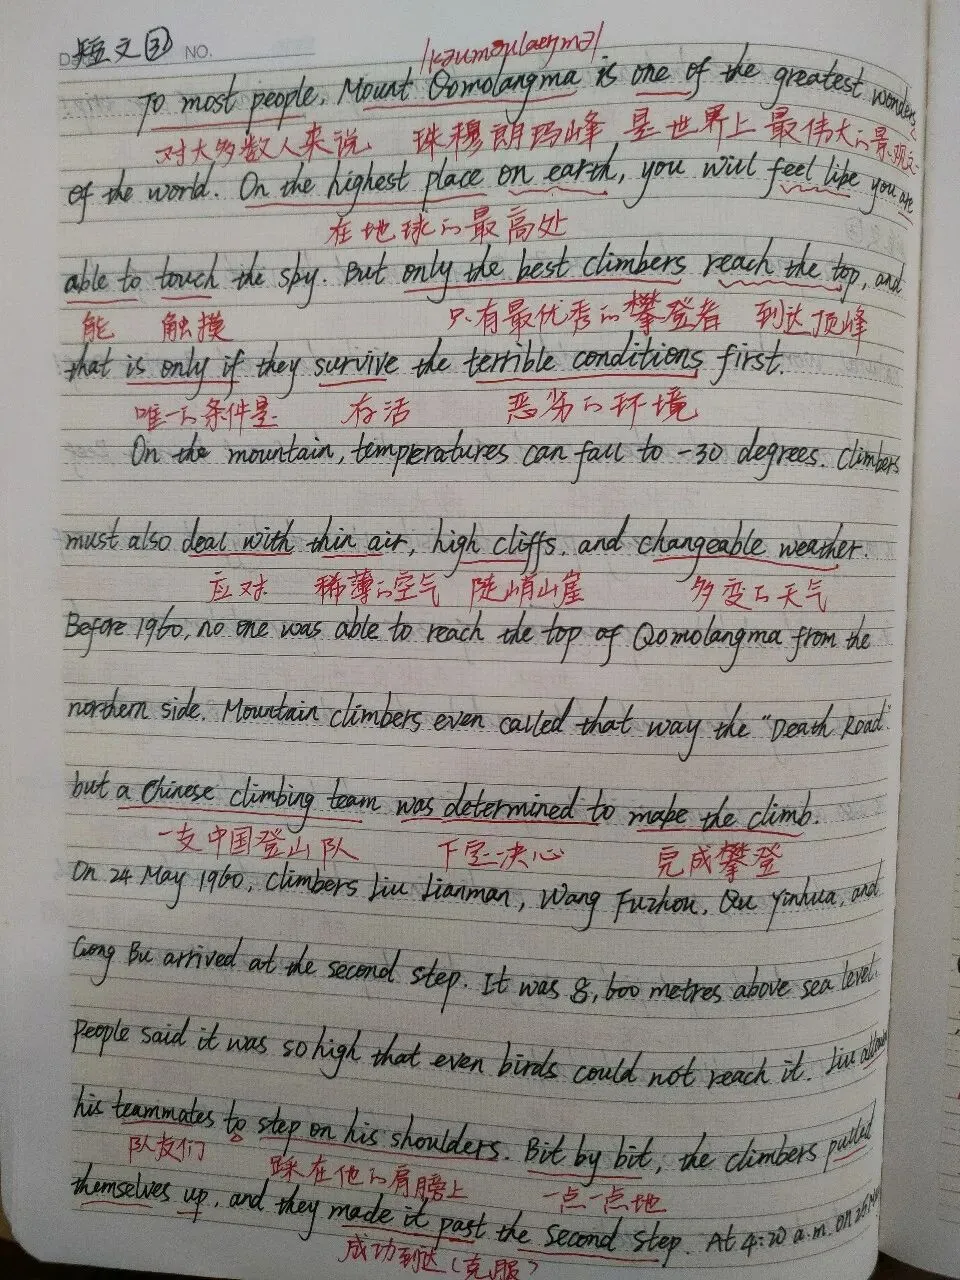 短文③ NO.
To most people, Mount Qomolangma is one of the greatest wonders
对大多数人来说 珠穆朗玛峰 是世界上最伟大的景观之
of the world. On the highest place on earth, you will feel like you are
在地球的最高处
able to touch the sky. But only the best climbers reach the top, and
能 触摸 只有最优秀的攀登者 到达顶峰
that is only if they survive the terrible conditions first.
唯一的条件是 存活 恶劣的环境
On the mountain, temperatures can fall to -30 degrees. Climbers
must also deal with thin air, high cliffs, and changeable weather.
应对 稀薄的空气 陡峭山崖 多变的天气
Before 1960, no one was able to reach the top of Qomolangma from the
northern side. Mountain climbers even called that way the "Death Road".
but a Chinese climbing team was determined to make the climb.
一支中国登山队 下定决心 完成攀登
On 24 May 1960, climbers Liu Lianman, Wang Fuzhou, Qu Yinhua, and
Gong Bu arrived at the second step. It was 8,600 metres above sea level.
People said it was so high that even birds could not reach it. Liu
his teammates to step on his shoulders. Bit by bit, the climbers pulled
队友们 踩在他的肩膀上 一点一点地
themselves up, and they made it past the second step. At 4:20 a.m. on 25
成功到达(克服)